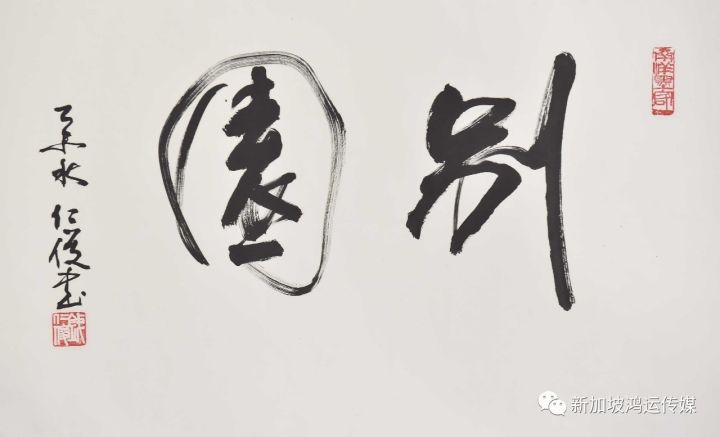 别園
乙未秋 仁俊書
新加坡鸿运传媒